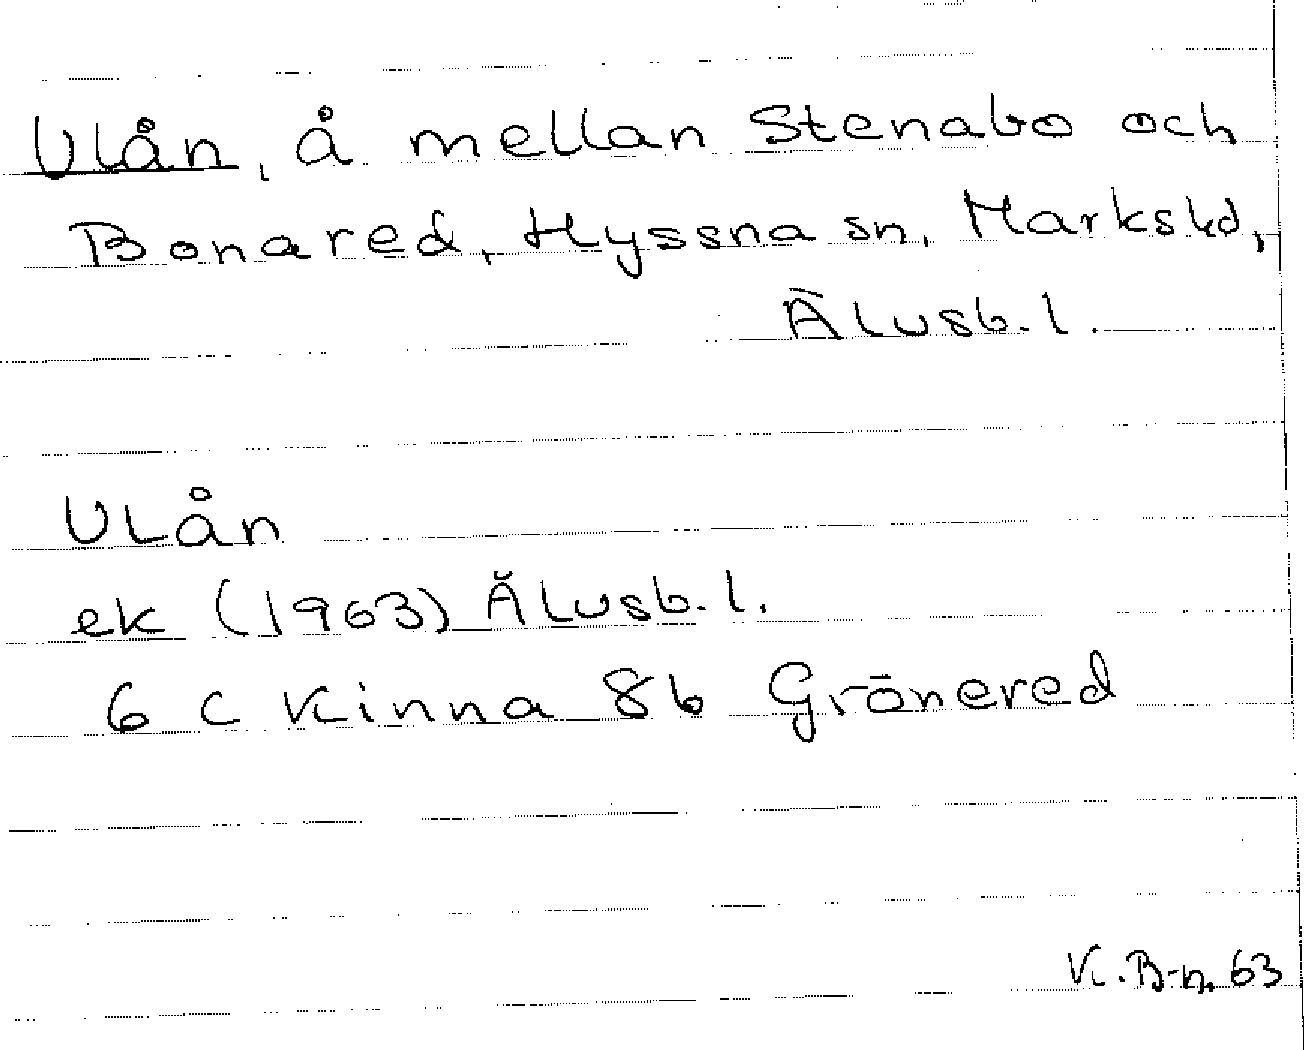 Ulån, å mellan Stenabo och
Bonared, Hyssna sn, Marks hd,
Älvsb. l.
Ulån
ek (1963) Älvsb. l.
6 C Kinna 8b Grönered
K. B-n, 63